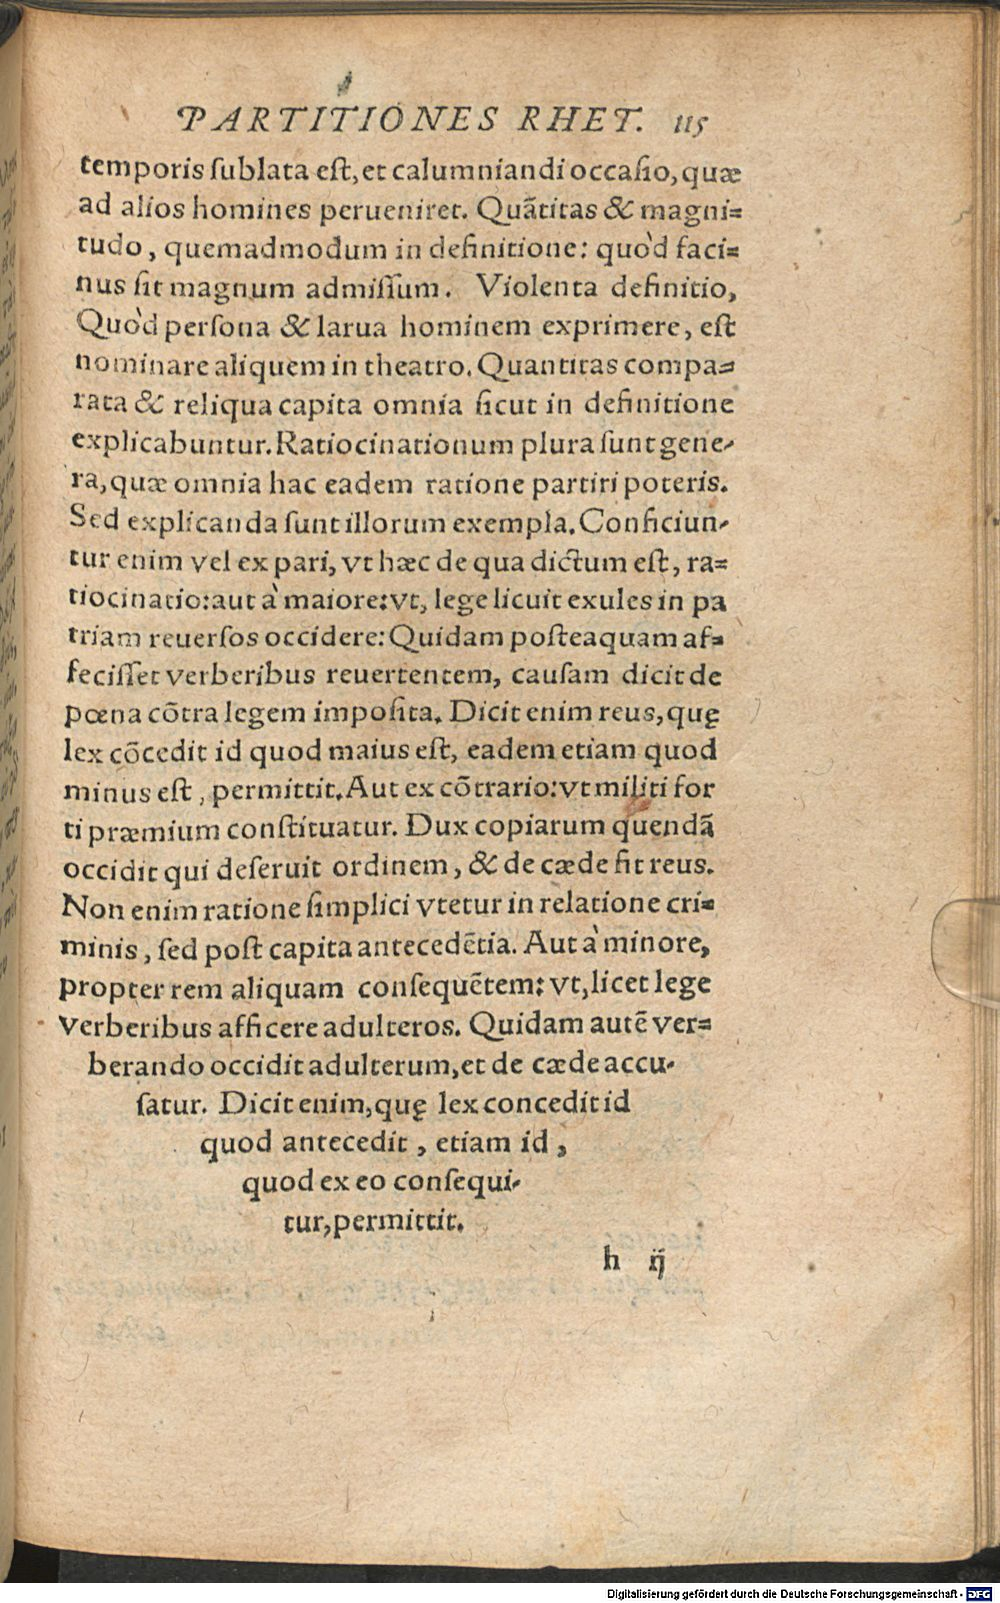 PARTITIONES RHET. 115
temporis ſublata eſt, et calumniandi occaſio, quæ
ad alios homines perueniret. Quãtitas & magni=
tudo, quemadmodum in definitione: quòd faci=
nus ſit magnum admiſſum. Violenta definitio,
Quòd perſona & larua hominem exprimere, eſt
nominare aliquem in theatro. Quantitas compa=
rata & reliqua capita omnia ſicut in definitione
explicabuntur. Ratiocinationum plura ſunt gene-
ra, quæ omnia hac eadem ratione partiri poteris.
Sed explicanda ſunt illorum exempla. Conficiun-
tur enim vel ex pari, vt hæc de qua dictum eſt, ra=
tiocinatio: aut à maiore: vt, lege licuit exules in pa
triam reuerſos occidere: Quidam poſteaquam af=
feciſſet verberibus reuertentem, cauſam dicit de
pœna cõtra legem impoſita. Dicit enim reus, quę
lex cõcedit id quod maius eſt, eadem etiam quod
minus eſt, permittit. Aut ex cõtrario: vt militi for
ti præmium conſtituatur. Dux copiarum quendã
occidit qui deſeruit ordinem, & de cæde fit reus.
Non enim ratione ſimplici vtetur in relatione cri=
minis, ſed poſt capita antecedẽtia. Aut à minore,
propter rem aliquam conſequẽtem: vt, licet lege
verberibus afficere adulteros. Quidam autẽ ver=
berando occidit adulterum, et de cæde accu-
ſatur. Dicit enim, quę lex concedit id
quod antecedit, etiam id,
quod ex eo conſequi-
tur, permittit.
h ij
Digitalisierung gefördert durch die Deutsche Forschungsgemeinschaft - DFG